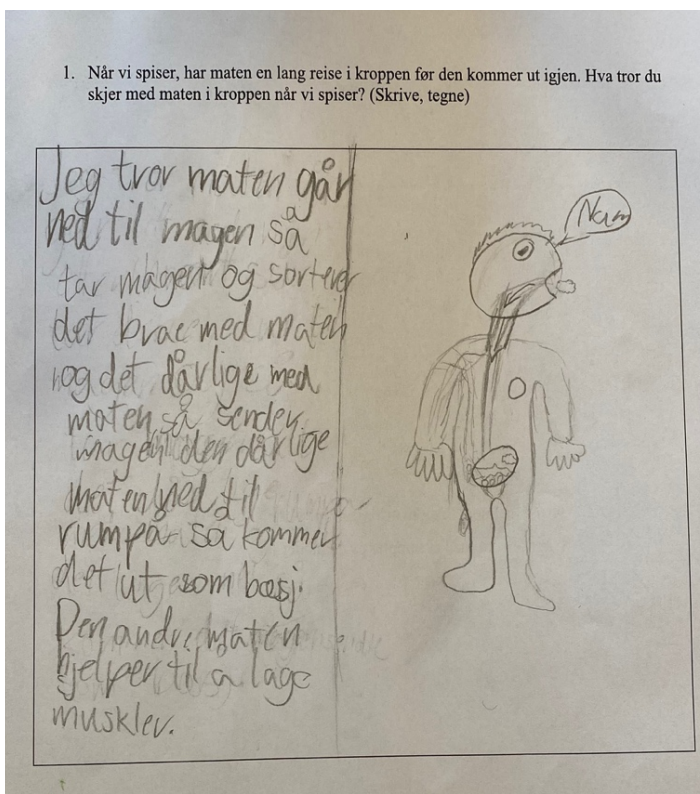 1. Når vi spiser, har maten en lang reise i kroppen før den kommer ut igjen. Hva tror du
skjer med maten i kroppen når vi spiser? (Skrive, tegne)
Jeg tror maten går
ned til magen så
tar magen og sorterer
det brae med maten
og det dårlige med
maten, så sender
magen den dårlige
maten ned til
rumpa så kommer
det ut som bæsj.
Den andre maten
hjelper til a lage
muskler.
Nam